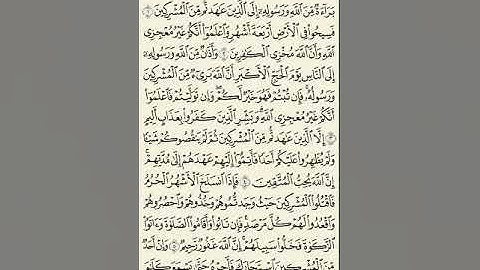 بَرَآءَةٌ مِّنَ ٱللَّهِ وَرَسُولِهِۦٓ إِلَى ٱلَّذِينَ عَٰهَدتُّم مِّنَ ٱلْمُشْرِكِينَ ١
فَسِيحُوا۟ فِى ٱلْأَرْضِ أَرْبَعَةَ أَشْهُرٍ وَٱعْلَمُوٓا۟ أَنَّكُمْ غَيْرُ مُعْجِزِى
ٱللَّهِ وَأَنَّ ٱللَّهَ مُخْزِى ٱلْكَٰفِرِينَ ٢ وَأَذَٰنٌ مِّنَ ٱللَّهِ وَرَسُولِهِۦٓ
إِلَى ٱلنَّاسِ يَوْمَ ٱلْحَجِّ ٱلْأَكْبَرِ أَنَّ ٱللَّهَ بَرِىٓءٌ مِّنَ ٱلْمُشْرِكِينَ
وَرَسُولُهُۥ فَإِن تُبْتُمْ فَهُوَ خَيْرٌ لَّكُمْ وَإِن تَوَلَّيْتُمْ فَٱعْلَمُوٓا۟
أَنَّكُمْ غَيْرُ مُعْجِزِى ٱللَّهِ وَبَشِّرِ ٱلَّذِينَ كَفَرُوا۟ بِعَذَابٍ أَلِيمٍ
٣ إِلَّا ٱلَّذِينَ عَٰهَدتُّم مِّنَ ٱلْمُشْرِكِينَ ثُمَّ لَمْ يَنقُصُوكُمْ شَيْـًٔا
وَلَمْ يُظَٰهِرُوا۟ عَلَيْكُمْ أَحَدًا فَأَتِمُّوٓا۟ إِلَيْهِمْ عَهْدَهُمْ إِلَىٰ مُدَّتِهِمْ
إِنَّ ٱللَّهَ يُحِبُّ ٱلْمُتَّقِينَ ٤ فَإِذَا ٱنسَلَخَ ٱلْأَشْهُرُ ٱلْحُرُمُ
فَٱقْتُلُوا۟ ٱلْمُشْرِكِينَ حَيْثُ وَجَدتُّمُوهُمْ وَخُذُوهُمْ وَٱحْصُرُوهُمْ
وَٱقْعُدُوا۟ لَهُمْ كُلَّ مَرْصَدٍ فَإِن تَابُوا۟ وَأَقَامُوا۟ ٱلصَّلَوٰةَ وَءَاتَوُا۟
ٱلزَّكَوٰةَ فَخَلُّوا۟ سَبِيلَهُمْ إِنَّ ٱللَّهَ غَفُورٌ رَّحِيمٌ ٥ وَإِنْ أَحَدٌ
مِّنَ ٱلْمُشْرِكِينَ ٱسْتَجَارَكَ فَأَجِرْهُ حَتَّىٰ يَسْمَعَ كَلَٰمَ